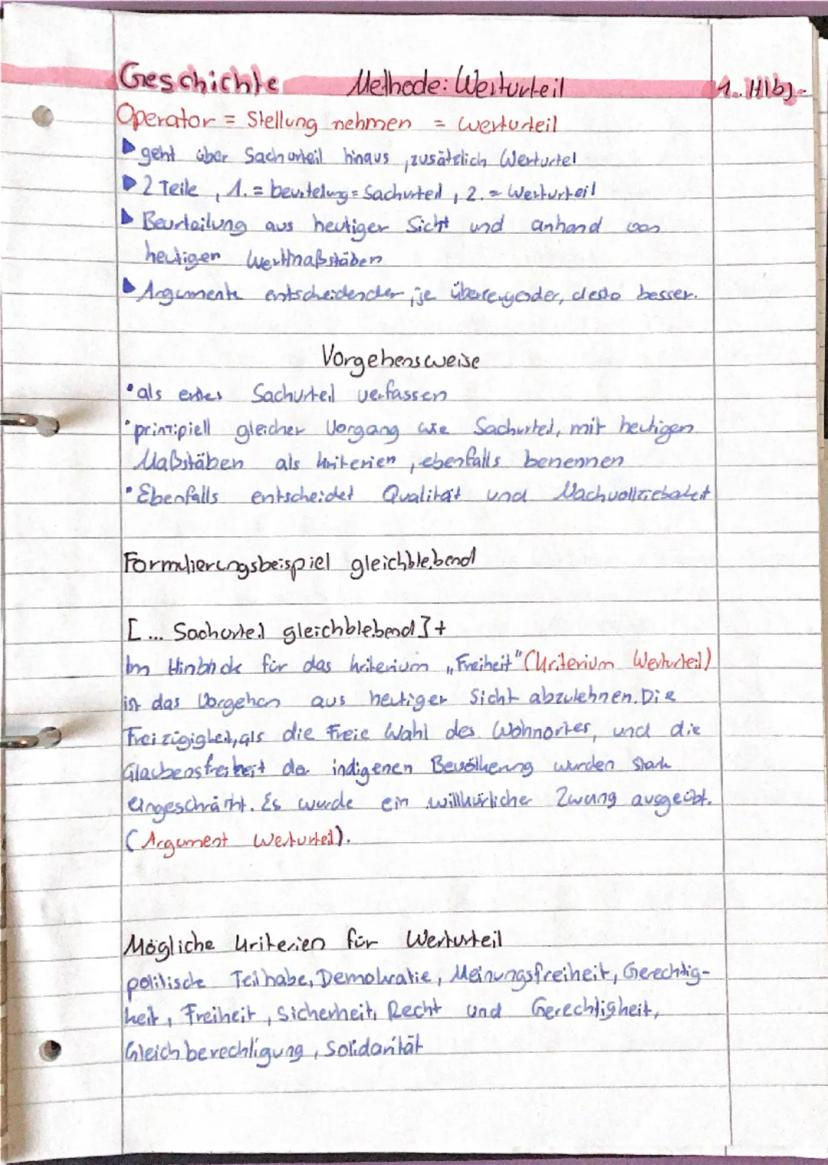 Geschichte Methode: Werturteil 1. Hlbj.
Operator = Stellung nehmen = Werturteil
geht über Sachurteil hinaus, zusätzlich Werturtel
2 Teile, 1. = beurteilung = Sachurteil, 2. = Werturteil
Beurteilung aus heutiger Sicht und anhand von
heutigen Wertmaßstäben
Argumente entscheidender, je überzeugender, desto besser.
Vorgehensweise
• als erstes Sachurteil verfassen
• prinzipiell gleicher Vorgang wie Sachurteil, mit heutigen
Maßstäben als kriterien, ebenfalls benennen
• Ebenfalls entscheidet Qualität und Nachvollziebarkeit
Formulierungsbeispiel gleichbleibend
[... Sachurteil gleichbleibend] +
Im Hinblick für das kriterium „Freiheit" (Kriterium Werturteil)
ist das Vorgehen aus heutiger Sicht abzulehnen. Die
Freizügigkeit, als die Freie Wahl des Wohnortes, und die
Glaubensfreiheit der indigenen Bevölkerung wurden stark
eingeschränkt. Es wurde ein willkürlicher Zwang ausgeübt.
(Argument Werturteil).
Mögliche Kriterien für Werturteil
politische Teilhabe, Demokratie, Meinungsfreiheit, Gerechtig-
keit, Freiheit, Sicherheit, Recht und Gerechtigkeit,
Gleichberechtigung, Solidarität